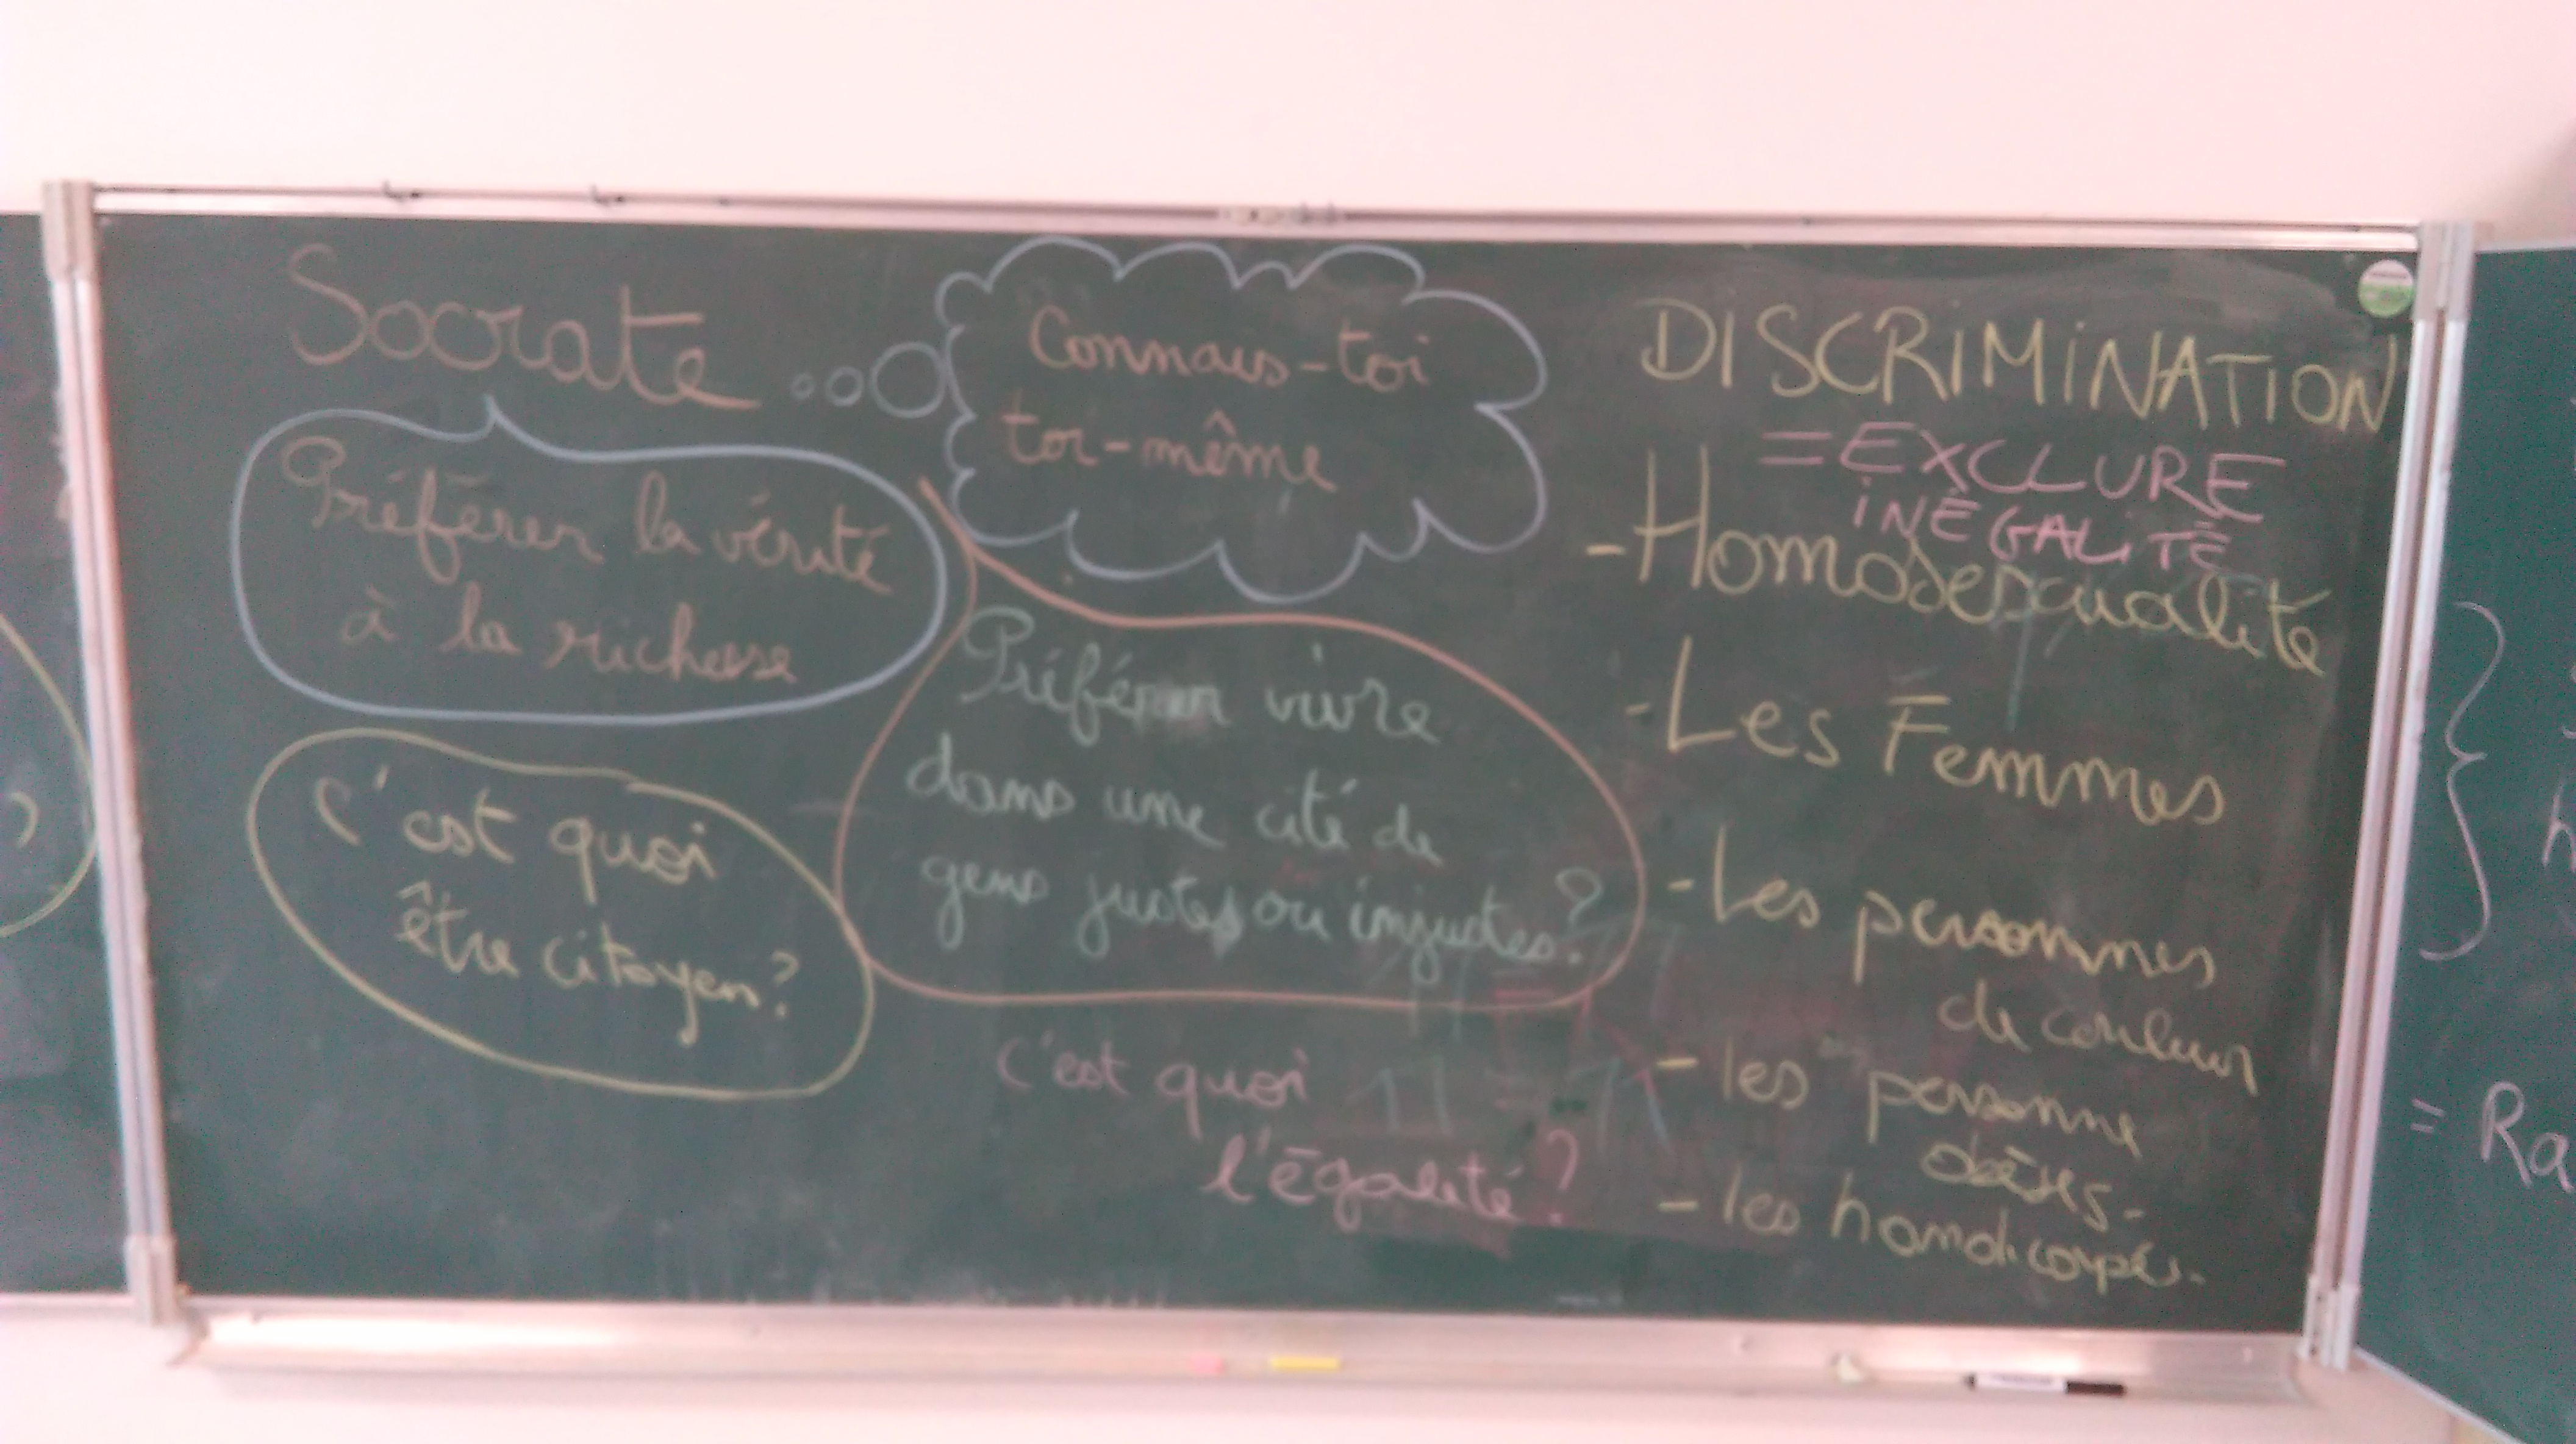 Socrate
Connais-toi
toi-même
Préférer la vérité
à la richesse
C'est quoi
être citoyen?
Préférer vivre
dans une cité de
gens justes ou injustes?
C'est quoi
l'égalité?
DISCRIMINATION
= EXCLURE
INÉGALITÉ
- Homosexualité
- Les Femmes
- Les personnes
de couleur
- les personne
obèses-
- les handicapés-
?
= Ra